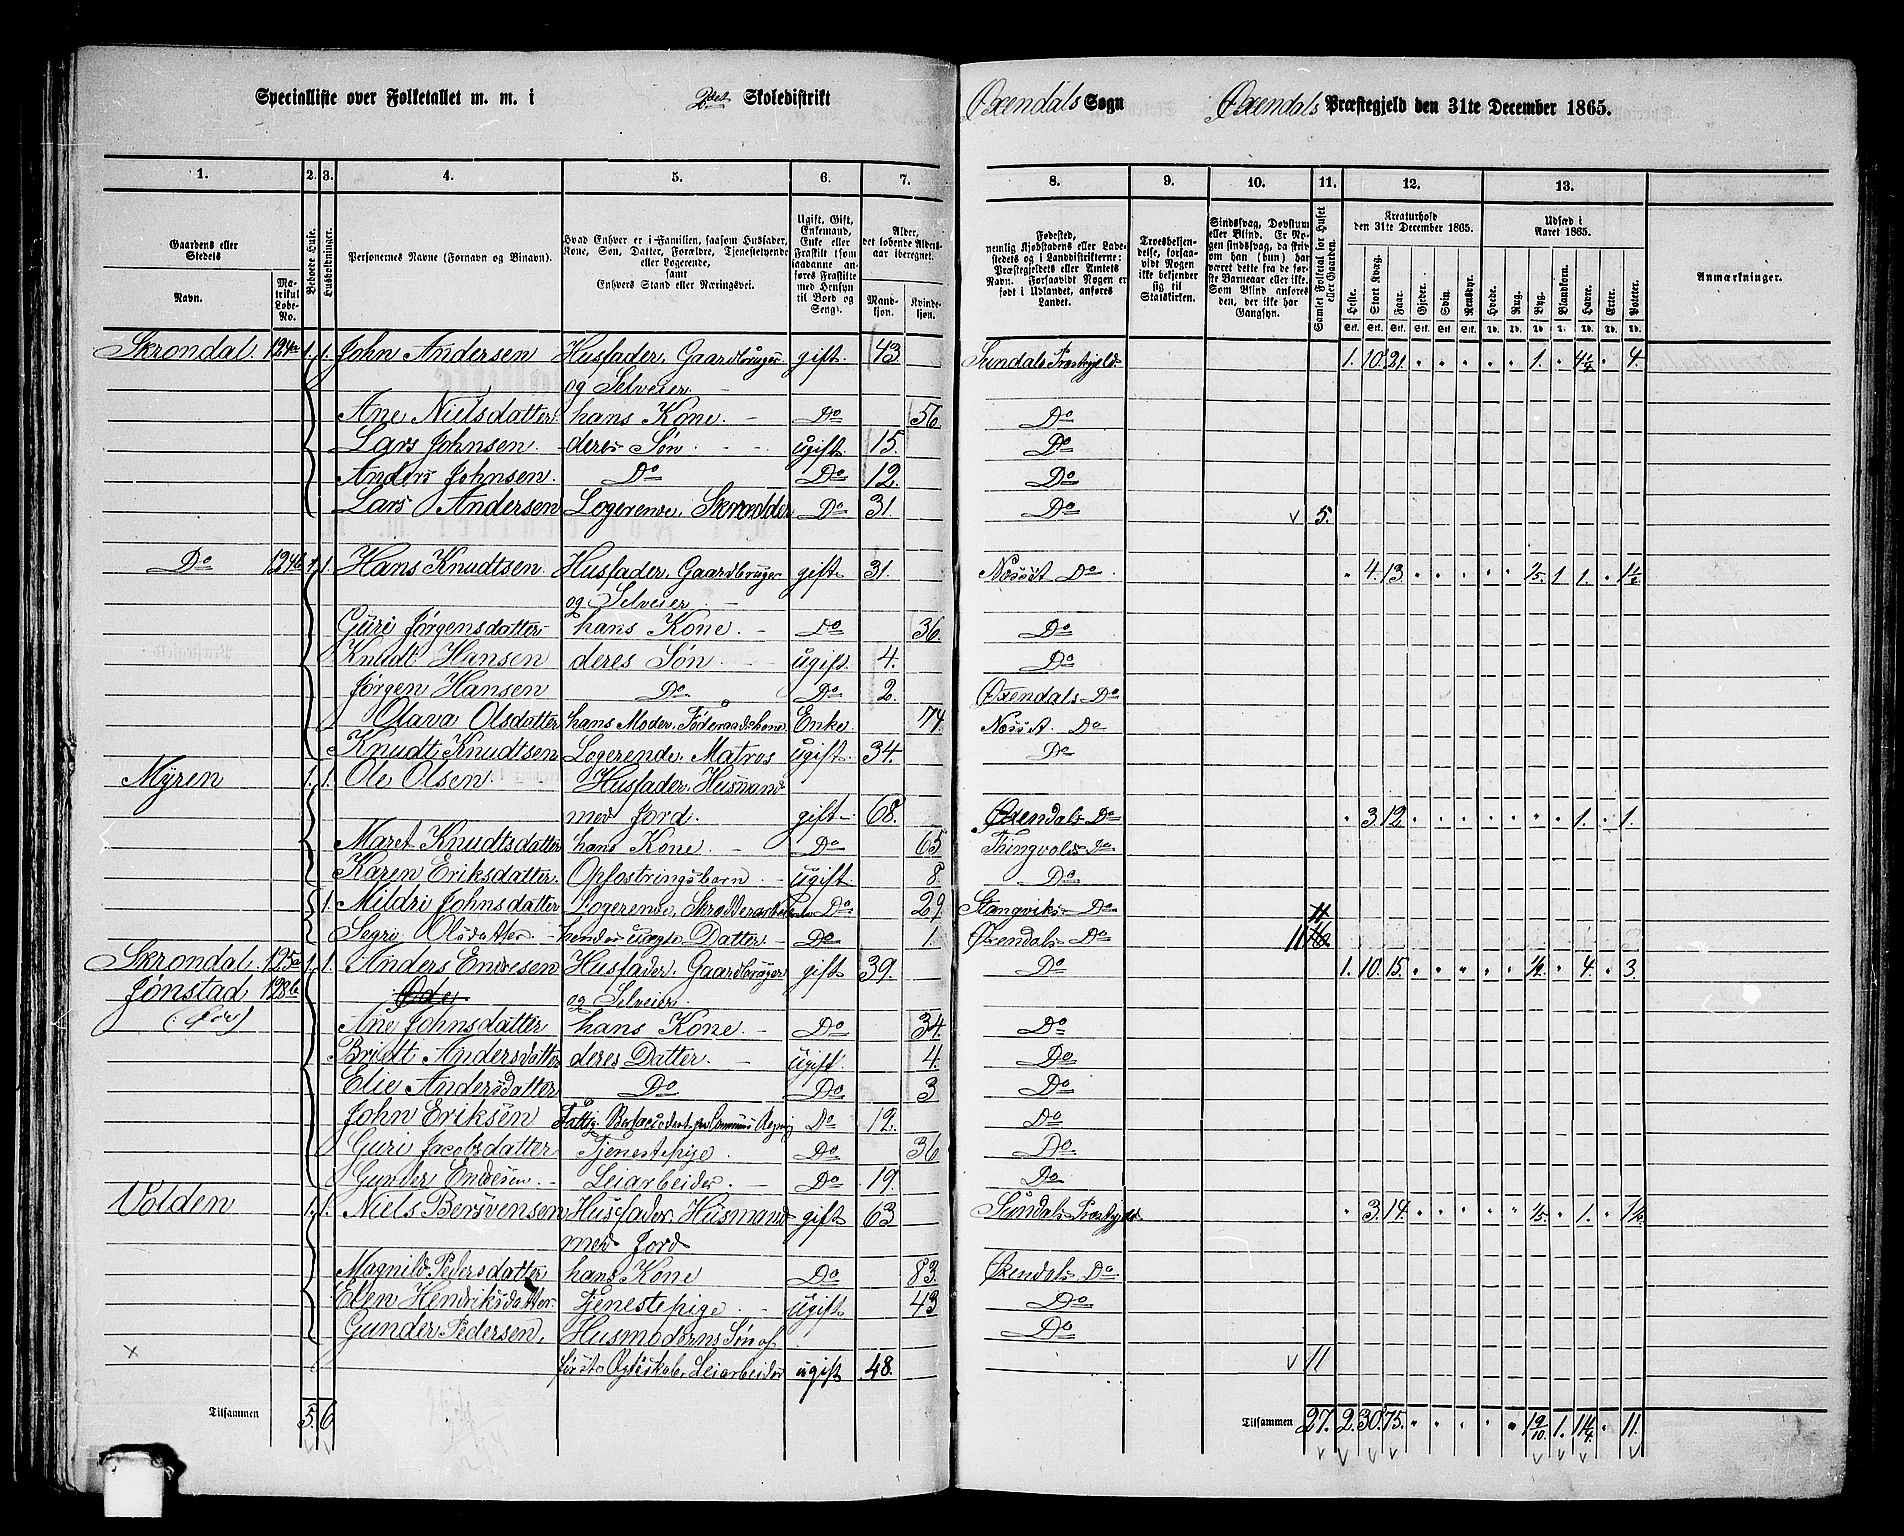 Specialliste over Folketallet m. m. i 2det Skoledistrikt Øxendals Sogn Øxendals Præstegjeld den 31te December 1865.
1. 2. 3. 4. 5. 6. 7. 8. 9. 10. 11. 12. 13.
Gaardens eller Stedets
Navn.
Matrikul Løbe-No.
Beboede Huse.
Husholdninger.
Personernes Navne (Fornavn og Binavn).
Hvad Enhver er i Familien, saasom Husfader, Kone, Søn, Datter, Forældre, Tjenestetyende eller Logerende, samt Enhvers Stand eller Næringsvei.
Ugift, Gift, Enkemand, Enke eller Fraskilt (som saadanne anføres Fraskilte med Hensyn til Bord og Seng).
Alder, det løbende Alders-aar iberegnet.
Mand-kjøn. Kvinde-kjøn.
Fødested, nemlig Kjøbstadens eller Ladestedets og i Landdistrikterne: Præstegjeldets eller Amtets Navn. Forsaavidt Nogen er født i Udlandet, anføres Landet.
Troesbekjendelse, forsaavidt Nogen ikke bekjender sig til Statskirken.
Sindssvag, Døvstum eller Blind. Er Nogen sindssvag, da skriv om han (hun) har været dette fra de første Barneaar eller ikke. Som Blind anføres den, der ikke har Gangsyn.
Samlet Folketal for Huset eller Gaarden.
Kreaturhold den 31te December 1865.
Heste. Stort Kvæg. Faar. Gjeder. Svin. Rensdyr.
Udsæd i Aaret 1865.
Hvede. Rug. Byg. Blandkorn. Havre. Erter. Poteter.
Anmærkninger.
Skrondal. 124a 1. 1. John Andersen Husfader, Gaardbruger gift. 43. Sundals Præstegjeld 1. 10. 21. 1. 4¼ 4.
og Selveier.
Ane Nielsdatter hans Kone. Do 56 Do
Lars Johnsen. deres Søn ugift 15. Do
Anders Johnsen. Do Do 12. Do
Lars Andersen Logerende, Skrædder Do 31. Do 5.
Do 124b 1. 1. Hans Knudtsen. Husfader, Gaardbruger gift 31. Næsset Do 4. 13. 1/5 1 1. 1½
og Selveier
Guri Jørgensdatter hans Kone. Do 36. Do
Knudt Hansen deres Søn ugift. 4. Do
Jørgen Hansen Do Do 2. Øxendals Do
Olava Olsdatter hans Moder, Føderaadskone Enke 74. Næsset. Do
Knudt Knudtsen Logerende, Matros ugift. 34. Do
Myren 1. 1. Ole Olsen. Husfader, Husmand
med Jord. gift. 68. Øxendals Do 3. 12. 1. 1.
Maret Knudtsdatter hans Kone. Do 65 Thingvolds Do
Karen Eriksdatter. Opfostringsbarn ugift. 8. Do
1. Mildri Johnsdatter Logerende, Do 29 Stangviks Do
Segri Olsdatter. hendes uægte Datter. Do 1. Øxendals Do 11
Skrondal 125a 1. 1. Anders Endresen Husfader, Gaardbruger gift 39. Do 1. 10. 15. ½ 4. 3.
Jønstad 128b og Selveier.
(: Øde)
Ane Johnsdatter hans Kone. Do 34. Do
Bridti Andersdatter deres Datter. ugift. 4. Do
Elie Andersdatter Do Do 3 Do
John Eriksen Do 12. Do
Guri Jacobsdatter Tjenestepige. Do 36 Do
Gunder Endresen. Leiarbeider. Do 19. Do
Volden 1. 1. Niels Bersvensen Husfader, Husmand gift 63 Sundals Præstegjeld 3. 14. 1/5 1. 1½
med Jord
Magnild Pedersdatter hans Kone Do 83. Øxendals Do
Elen Hendriksdatter. Tjenestepige. ugift 43 Do
Gunder Pedersen, Husmoderens Søn af Do
første Ægteskab, Leiarbeider ugift 48. 11
Tilsammen 5. 6 Tilsammen 27. 2. 30. 75. 1 9/10 1. 11¼ 11.